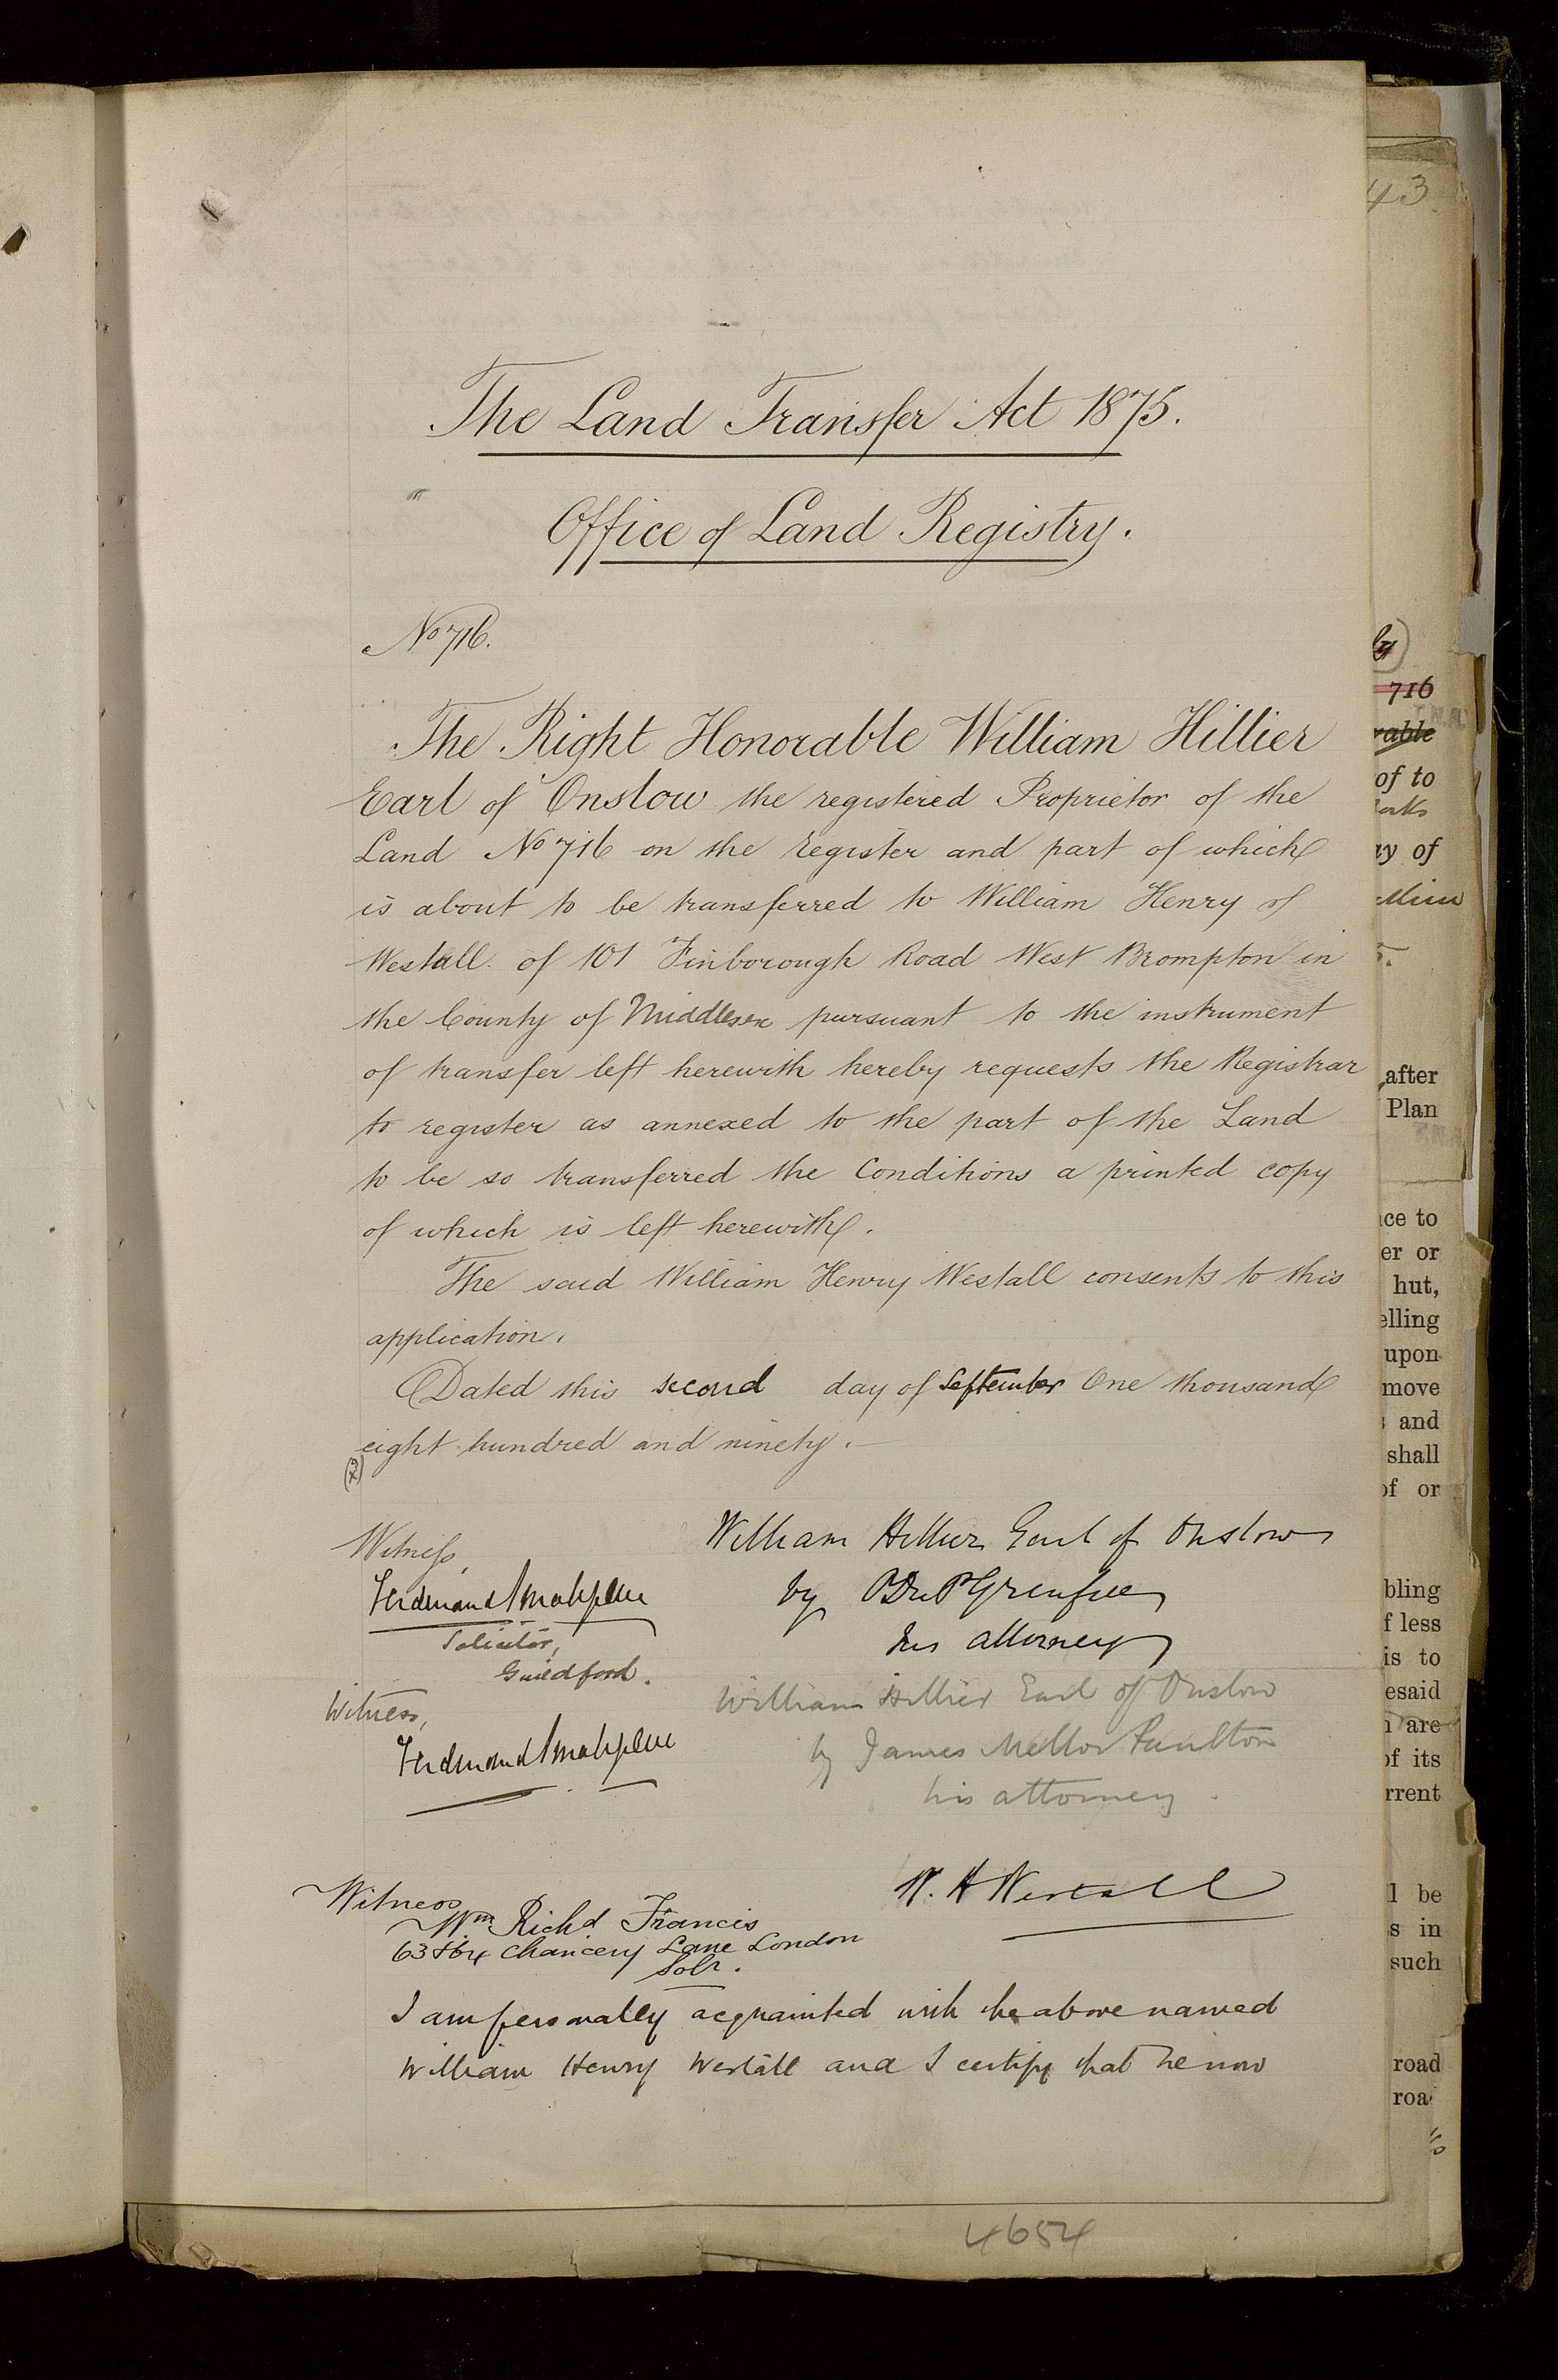 The Land Transfer Act 1875.
Office of Land Registry.
No 716.
The Right Honorable William Hillier
Earl of Onslow the registered Proprietor of the
Land No 716 on the register and part of which
is about to be transferred to William Henry of
Westall of 101 Finborough Road West Brompton in
the County of Middlesex pursuant to the instrument
of transfer left herewith hereby requests the Registrar
to register as annexed to the part of the Land
to be so transferred the Conditions a printed copy
of which is left herewith.
The said William Henry Westall consents to this
application.
Dated this second day of September One thousand
eight hundred and ninety.
William Hillier Earl of Onslow
by Grenfell
his attorney
Witness,
Ferdinand Smallpeice
Solicitor,
Guildford.
William Hillier Earl of Onslow
by James Mellor Paulton
his attorney
Witness,
Ferdinand Smallpeice
W. H Westall
Witness
Wm Richd Francis
63 & 64 Chancery Lane London
Solr.
I am personally acquainted with the above named
William Henry Westall and I certify that he now
4654
43
716
rable
of to
ay of
after
Plan
ce to
er or
hut,
elling
upon
move
and
shall
of or
bling
f less
is to
esaid
are
of its
rrent
l be
s in
such
road
roa